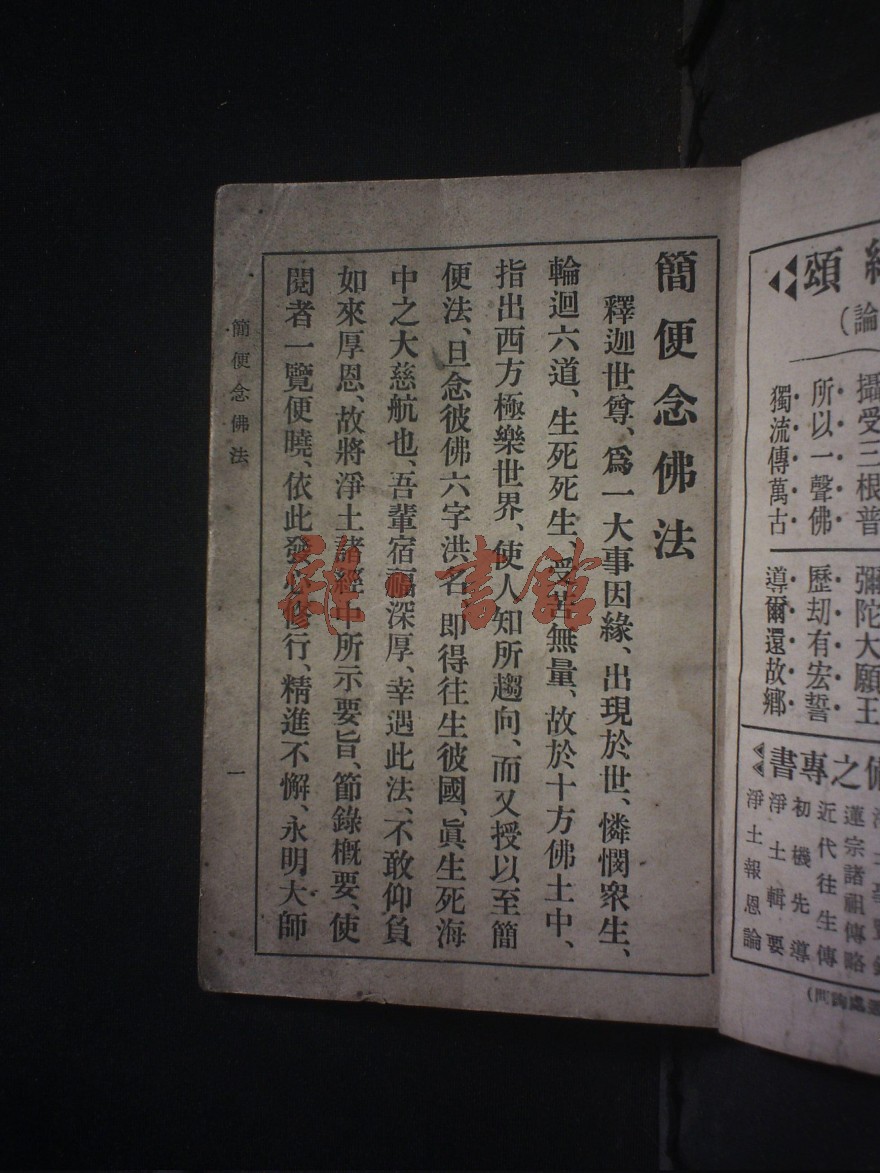 簡便念佛法
釋迦世尊、爲一大事因緣、出現於世、憐憫衆生、
輪迴六道、生死死生、受苦無量、故於十方佛土中、
指出西方極樂世界、使人知所趨向、而又授以至簡
便法、旦念彼佛六字洪名、即得往生彼國、眞生死海
中之大慈航也、吾輩宿福深厚、幸遇此法、不敢仰負
如來厚恩、故將淨土諸經中所示要旨、節錄概要、使
閱者一覽便曉、依此發心修行、精進不懈、永明大師
簡便念佛法
一
雜·書館
頌
(論
攝受三根普
所以一聲佛
獨流傳萬古
彌陀大願王
歷刧有宏誓
導爾還故鄉
書專之佛
蓮宗諸祖傳略
近代往生傳
初機先導
淨土輯要
淨土報恩論